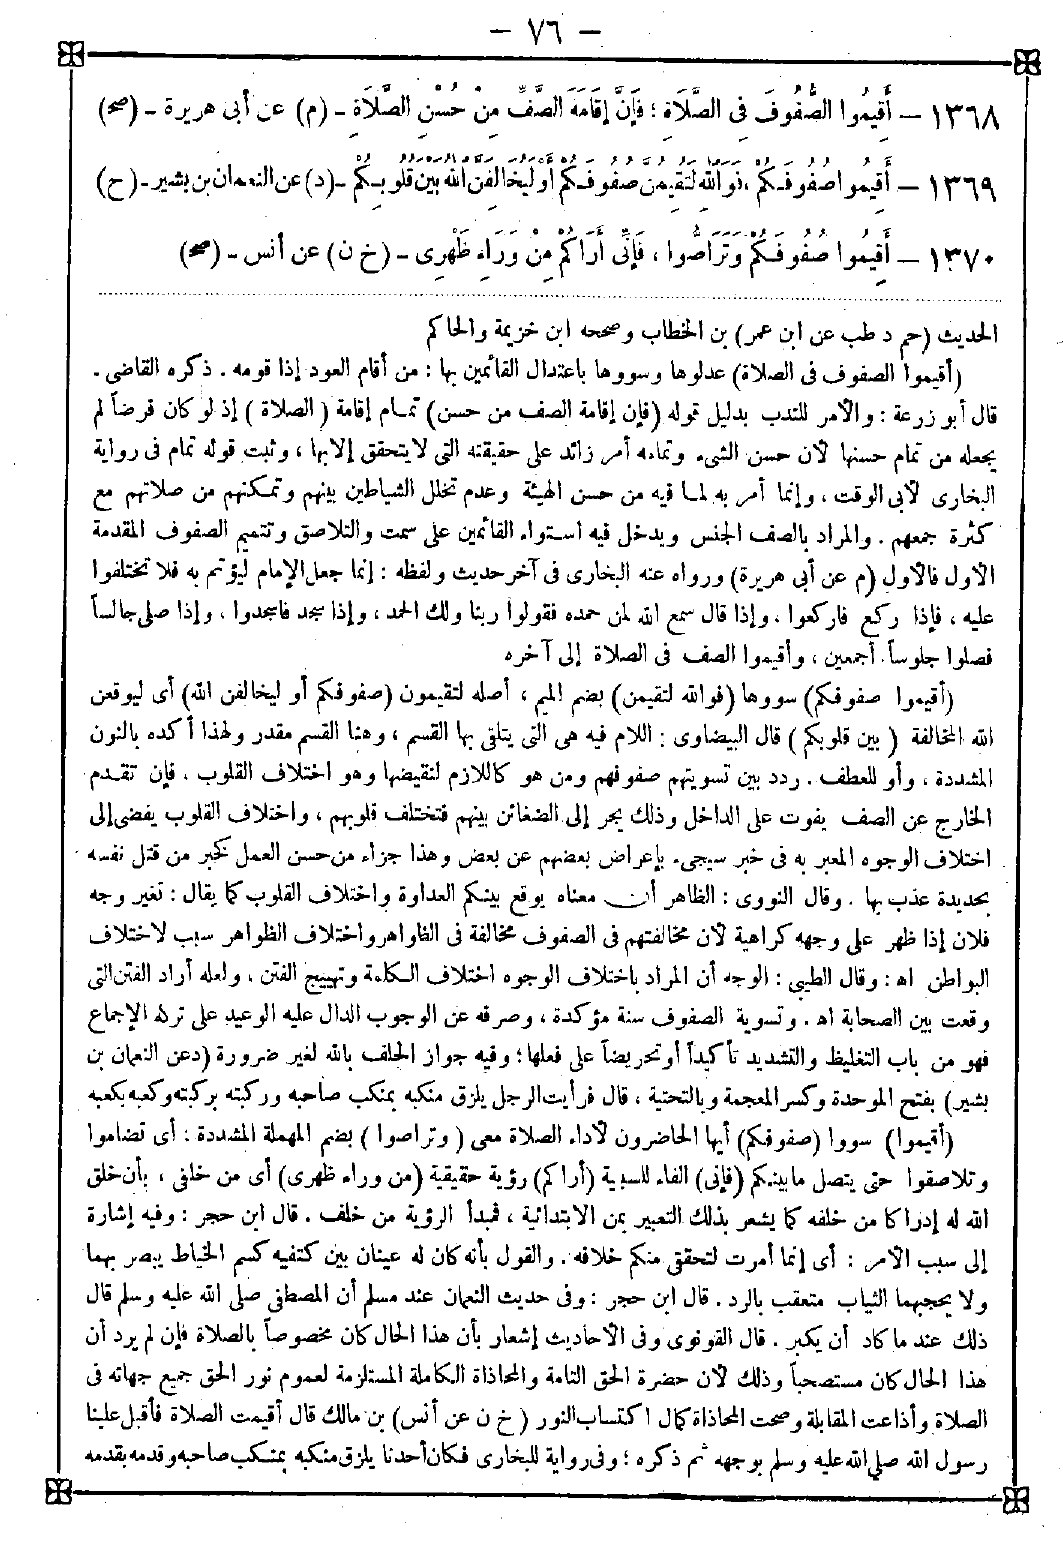 - ٧٦ -
١٣٦٨ - أَقِيمُوا الصُّفُوفَ فِى الصَّلَاةِ ؛ فَإِنَّ إِقَامَةَ الصَّفِّ مِنْ حُسْنِ الصَّلَاةِ - (م) عن أبى هريرة - (صح)
١٣٦٩ - أَقِيمُوا صُفُوفَكُمْ ، فَوَاللهِ لَتُقِيمُنَّ صُفُوفَكُمْ أَوْ لَيُخَالِفَنَّ اللهُ بَيْنَ قُلُوبِكُمْ - (د) عن النعمان بن بشير - (ح)
١٣٧٠ - أَقِيمُوا صُفُوفَكُمْ وَتَرَاصُّوا ، فَإِنِّى أَرَاكُمْ مِنْ وَرَاءِ ظَهْرِى - (خ ن) عن أنس - (صح)
الحديث (حم د طب عن ابن عمر) بن الخطاب وصححه ابن خزيمة والحاكم
(أقيموا الصفوف فى الصلاة) عدلوها وسووها باعتدال القائمين بها : من أقام العود إذا قومه . ذكره القاضى .
قال أبو زرعة : والأمر للندب بدليل قوله (فإن إقامة الصف من حسن) تمام إقامة (الصلاة) إذ لو كان فرضاً لم
يجعله من تمام حسنها لأن حسن الشىء وتمامه أمر زائد على حقيقته التى لايتحقق إلابها ، وثبت قوله تمام فى رواية
البخارى لأبى الوقت ، وإنما أمر به لما فيه من حسن الهيئة وعدم تخلل الشياطين بينهم وتمكنهم من صلاتهم مع
كثرة جمعهم . والمراد بالصف الجنس ويدخل فيه استواء القائمين على سمت والتلاصق وتتميم الصفوف المقدمة
الأول فالأول (م عن أبى هريرة) ورواه عنه البخارى فى آخر حديث ولفظه : إنما جعل الإمام ليؤتم به فلا تختلفوا
عليه ، فإذا ركع فاركعوا ، وإذا قال سمع الله لمن حمده فقولوا ربنا ولك الحمد ، وإذا سجد فاسجدوا ، وإذا صلى جالساً
فصلوا جلوساً أجمعين ، وأقيموا الصف فى الصلاة إلى آخره
(أقيموا صفوفكم) سووها (فوالله لتقيمن) بضم الميم ، أصله لتقيمون (صفوفكم أو ليخالفن الله) أى ليوقعن
الله المخالفة (بين قلوبكم) قال البيضاوى : اللام فيه هى التى يتلقى بها القسم ، وهنا القسم مقدر ولهذا أكده بالنون
المشددة ، وأو للعطف . ردد بين تسويتهم صفوفهم ومن هو كاللازم لنقيضها وهو اختلاف القلوب . فإن تقدم
الخارج عن الصف يفوت على الداخل وذلك يجر إلى الضغائن بينهم فتختلف قلوبهم ، واختلاف القلوب يفضى إلى
اختلاف الوجوه المعبر به فى خبر سيجىء بإعراض بعضهم عن بعض وهذا جزاء من حسن العمل كخبر من قتل نفسه
بحديدة عذب بها . وقال النووى : الظاهر أن معناه يوقع بينكم العداوة واختلاف القلوب كما يقال : تغير وجه
فلان إذا ظهر على وجهه كراهية لأن مخالفتهم فى الصفوف مخالفة فى الظواهر واختلاف الظواهر سبب لاختلاف
البواطن اه : وقال الطيبى : الوجه أن المراد باختلاف الوجوه اختلاف الكلمة وتهييج الفتن ، ولعله أراد الفتن التى
وقعت بين الصحابة اه . وتسوية الصفوف سنة مؤكدة ، وصرفه عن الوجوب الدال عليه الوعيد على تركه الإجماع
فهو من باب التغليظ والتشديد تأكيداً أوتحريضاً على فعلها ؛ وفيه جواز الحلف بالله لغير ضرورة (د عن النعمان بن
بشير) بفتح الموحدة وكسر المعجمة وبالتحتية ، قال فرأيت الرجل يلزق منكبه بمنكب صاحبه وركبته بركبته وكعبه بكعبه
(أقيموا) سووا (صفوفكم) أيها الحاضرون لأداء الصلاة معى (وتراصوا) بضم المهملة المشددة : أى تضاموا
وتلاصقوا حتى يتصل مابينكم (فإنى) الفاء للسببية (أراكم) رؤية حقيقية (من وراء ظهرى) أى من خلفى ، بأن خلق
الله له إدراكا من خلفه كما يشعر بذلك التعبير بمن الابتدائية ، فمبدأ الرؤية من خلف . قال ابن حجر : وفيه إشارة
إلى سبب الأمر : أى إنما أمرت لتحقق منكم خلافه . والقول بأنه كان له عينان بين كتفيه كسم الخياط يبصر بهما
ولا يحجبهما الثياب متعقب بالرد . قال ابن حجر : وفى حديث النعمان عند مسلم أن المصطفى صلى الله عليه وسلم قال
ذلك عند ما كاد أن يكبر . قال القونوى وفى الأحاديث إشعار بأن هذا الحال كان مخصوصاً بالصلاة فإن لم يرد أن
هذا الحال كان مستصحباً وذلك لأن حضرة الحق التامة والمحاذاة الكاملة المستلزمة لعموم نور الحق جميع جهاته فى
الصلاة وأذاعت المقابلة وصحت المحاذاة كمال اكتساب النور (خ ن عن أنس) بن مالك قال أقيمت الصلاة فأقبل علينا
رسول الله صلى الله عليه وسلم بوجهه ثم ذكره ؛ وفى رواية للبخارى فكان أحدنا يلزق منكبه بمنكب صاحبه وقدمه بقدمه